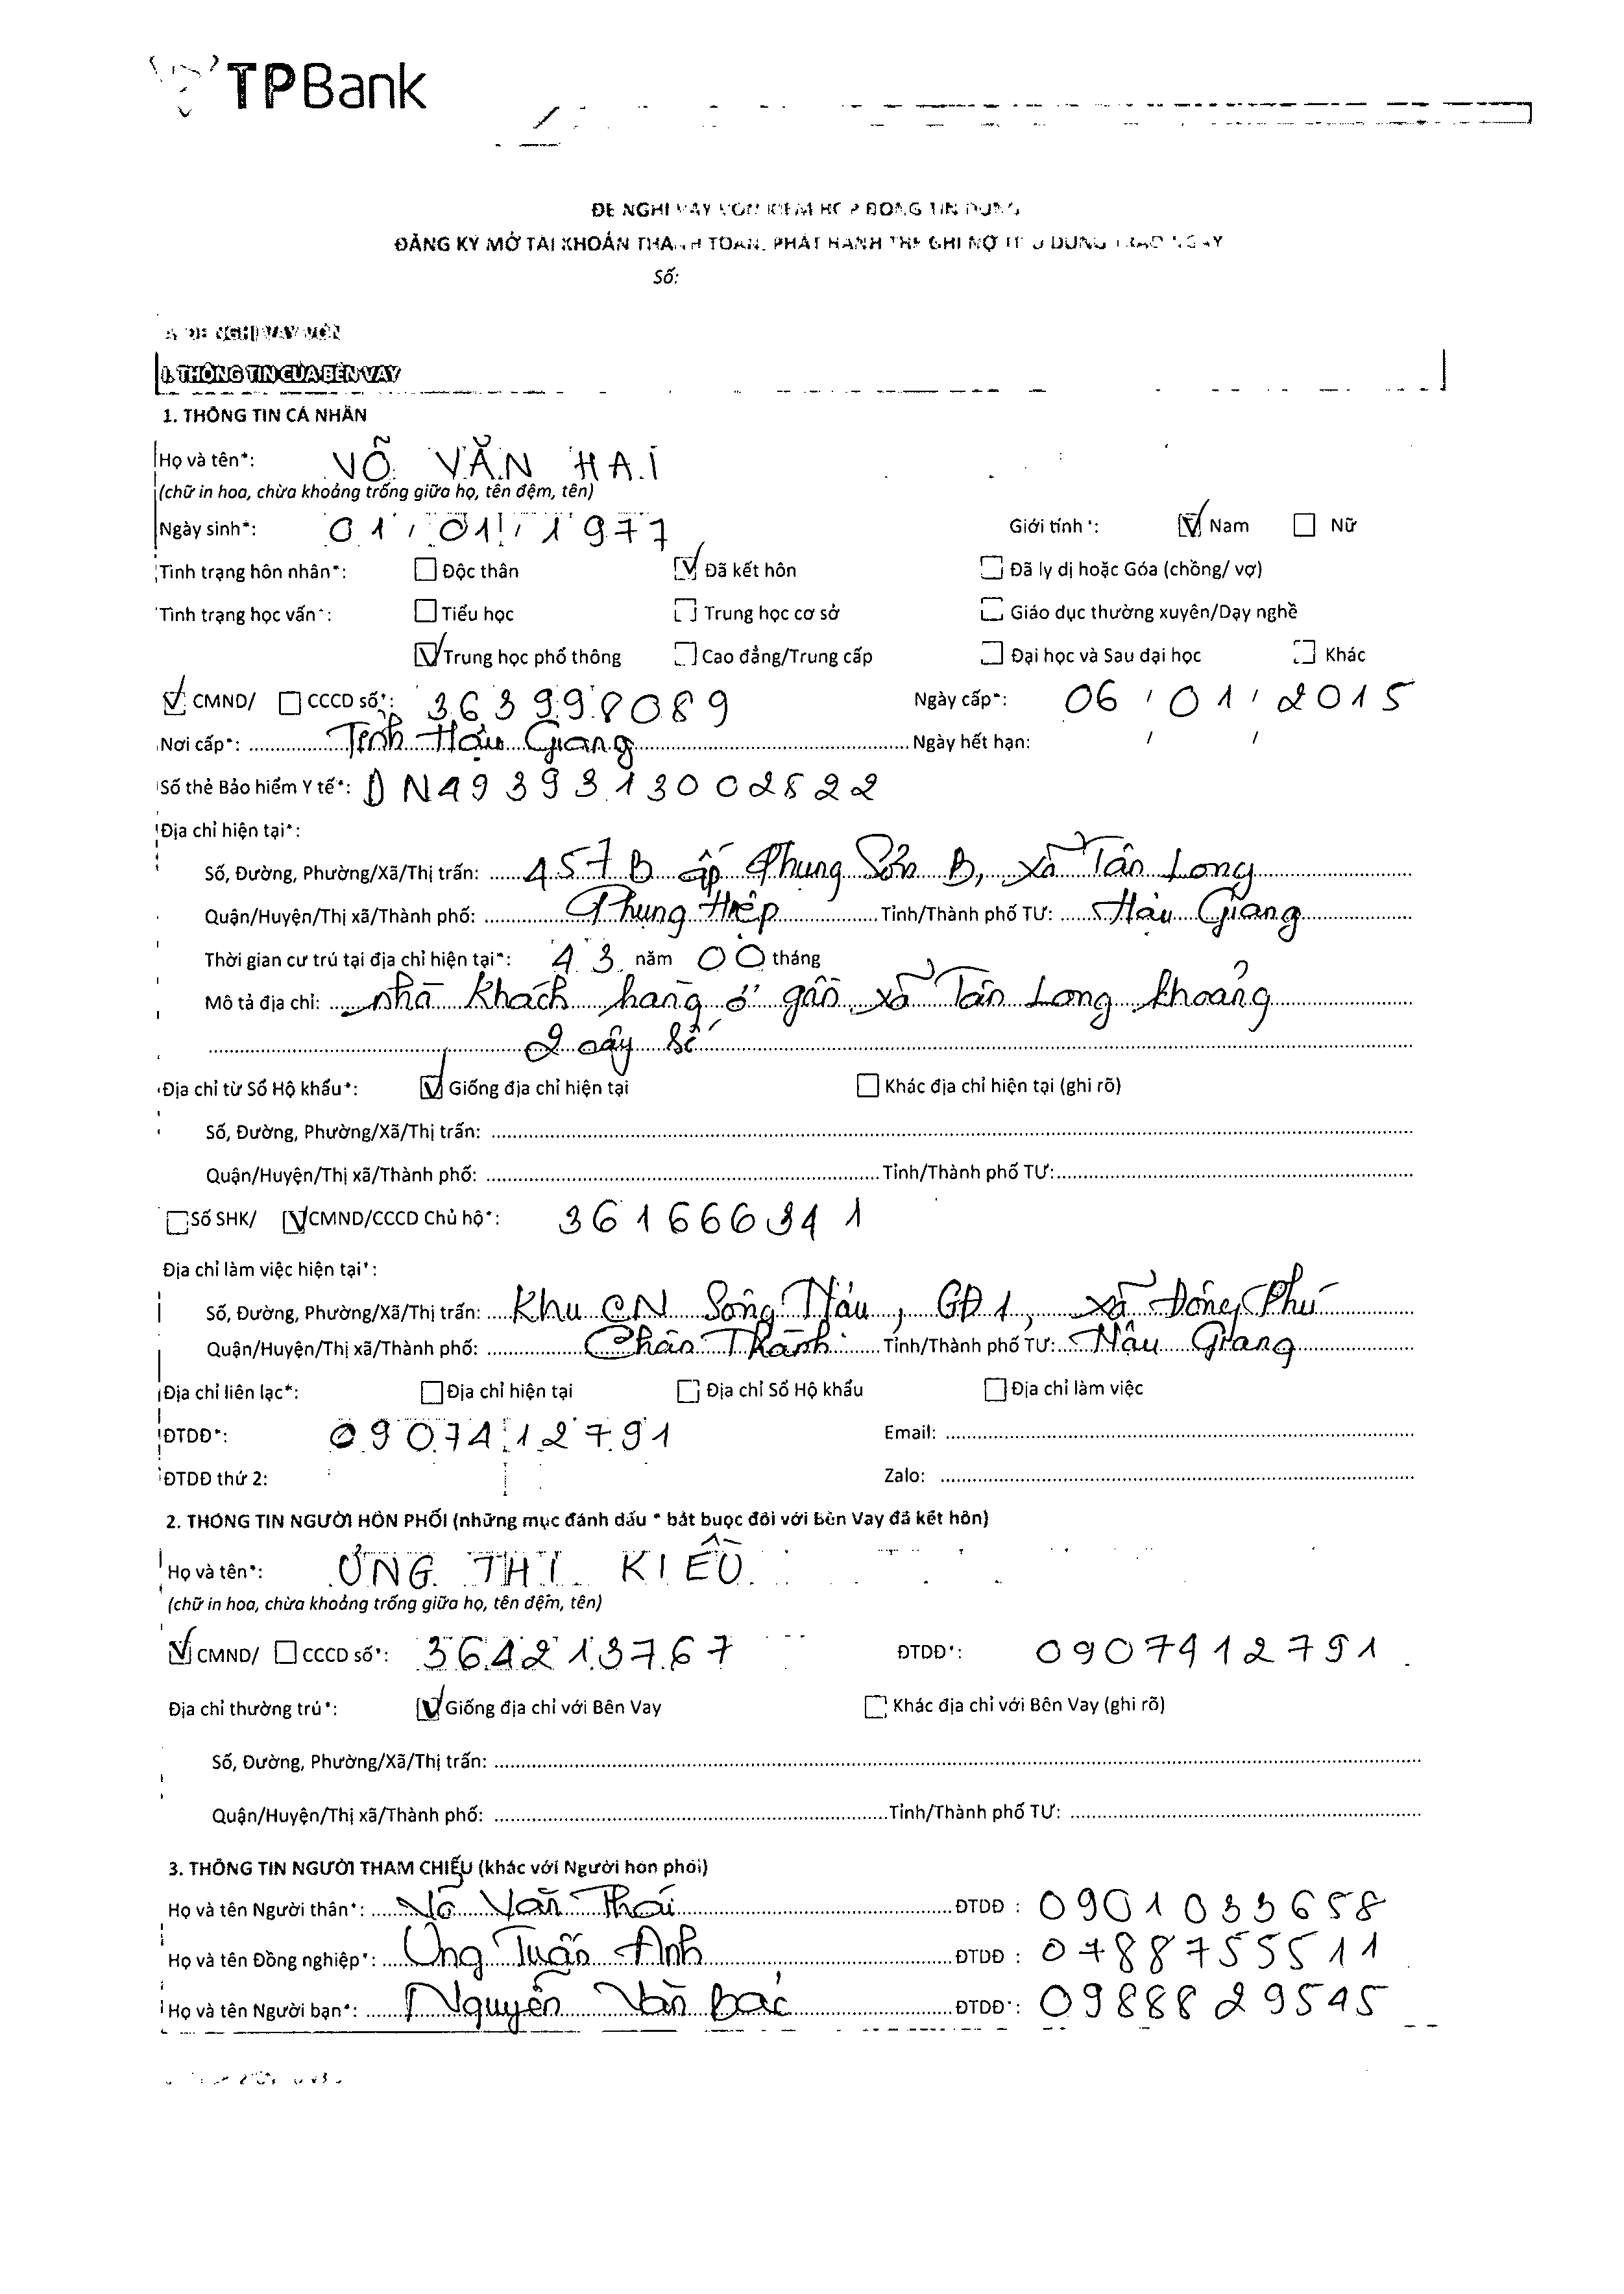 TPBank
ĐỀ NGHỊ VAY VỐN KIÊM HỢP ĐỒNG TÍN DỤNG
ĐĂNG KÝ MỞ TÀI KHOẢN THANH TOÁN, PHÁT HÀNH THẺ GHI NỢ
Số:
A. ĐỀ NGHỊ VAY VỐN
I. THÔNG TIN CỦA BÊN VAY
1. THÔNG TIN CÁ NHÂN
Họ và tên*: VÕ VĂN HAI
(chữ in hoa, chừa khoảng trống giữa họ, tên đệm, tên)
Ngày sinh*: 01 / 01 / 1977 Giới tính*: Nam Nữ
Tình trạng hôn nhân*: Độc thân Đã kết hôn Đã ly dị hoặc Góa (chồng/ vợ)
Tình trạng học vấn*: Tiểu học Trung học cơ sở Giáo dục thường xuyên/Dạy nghề
Trung học phổ thông Cao đẳng/Trung cấp Đại học và Sau đại học Khác
CMND/ CCCD số*: 363998089 Ngày cấp*: 06 / 01 / 2015
Nơi cấp*: Tỉnh Hậu Giang Ngày hết hạn: / /
Số thẻ Bảo hiểm Y tế*: DN4939313002822
Địa chỉ hiện tại*:
Số, Đường, Phường/Xã/Thị trấn: 457B ấp Phụng Sơn B, xã Tân Long
Quận/Huyện/Thị xã/Thành phố: Phụng Hiệp Tỉnh/Thành phố TƯ: Hậu Giang
Thời gian cư trú tại địa chỉ hiện tại*: 43 năm 00 tháng
Mô tả địa chỉ: nhà khách hàng ở gần xã Tân Long khoảng
2 cây số
Địa chỉ từ Sổ Hộ khẩu*: Giống địa chỉ hiện tại Khác địa chỉ hiện tại (ghi rõ)
Số, Đường, Phường/Xã/Thị trấn:
Quận/Huyện/Thị xã/Thành phố: Tỉnh/Thành phố TƯ:
Số SHK/ CMND/CCCD Chủ hộ*: 361666341
Địa chỉ làm việc hiện tại*:
Số, Đường, Phường/Xã/Thị trấn: Khu CN Sông Hậu, GĐ1, xã Đông Phú
Quận/Huyện/Thị xã/Thành phố: Châu Thành Tỉnh/Thành phố TƯ: Hậu Giang
Địa chỉ liên lạc*: Địa chỉ hiện tại Địa chỉ Sổ Hộ khẩu Địa chỉ làm việc
ĐTDĐ*: 0907412791 Email:
ĐTDĐ thứ 2: Zalo:
2. THÔNG TIN NGƯỜI HÔN PHỐI (những mục đánh dấu * bắt buộc đối với Bên Vay đã kết hôn)
Họ và tên*: ƯNG THỊ KIỀU
(chữ in hoa, chừa khoảng trống giữa họ, tên đệm, tên)
CMND/ CCCD số*: 364213767 ĐTDĐ*: 0907412791
Địa chỉ thường trú*: Giống địa chỉ với Bên Vay Khác địa chỉ với Bên Vay (ghi rõ)
Số, Đường, Phường/Xã/Thị trấn:
Quận/Huyện/Thị xã/Thành phố: Tỉnh/Thành phố TƯ:
3. THÔNG TIN NGƯỜI THAM CHIẾU (khác với Người hôn phối)
Họ và tên Người thân*: Võ Văn Thái ĐTDĐ : 0901033658
Họ và tên Đồng nghiệp*: Ưng Tuấn Anh ĐTDĐ : 0788755511
Họ và tên Người bạn*: Nguyễn Văn Bảc ĐTDĐ*: 0988829545